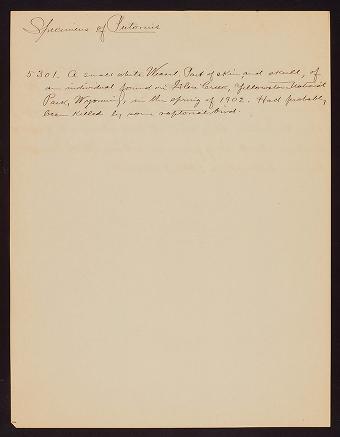 Specimens of Putorius
5301. A small white Weasel. Part of skin and skull, of
an individual found on Glen Creek, Yellowstone National
Park, Wyoming, in the spring of 1902. Had probably
been killed by some raptorial bird.